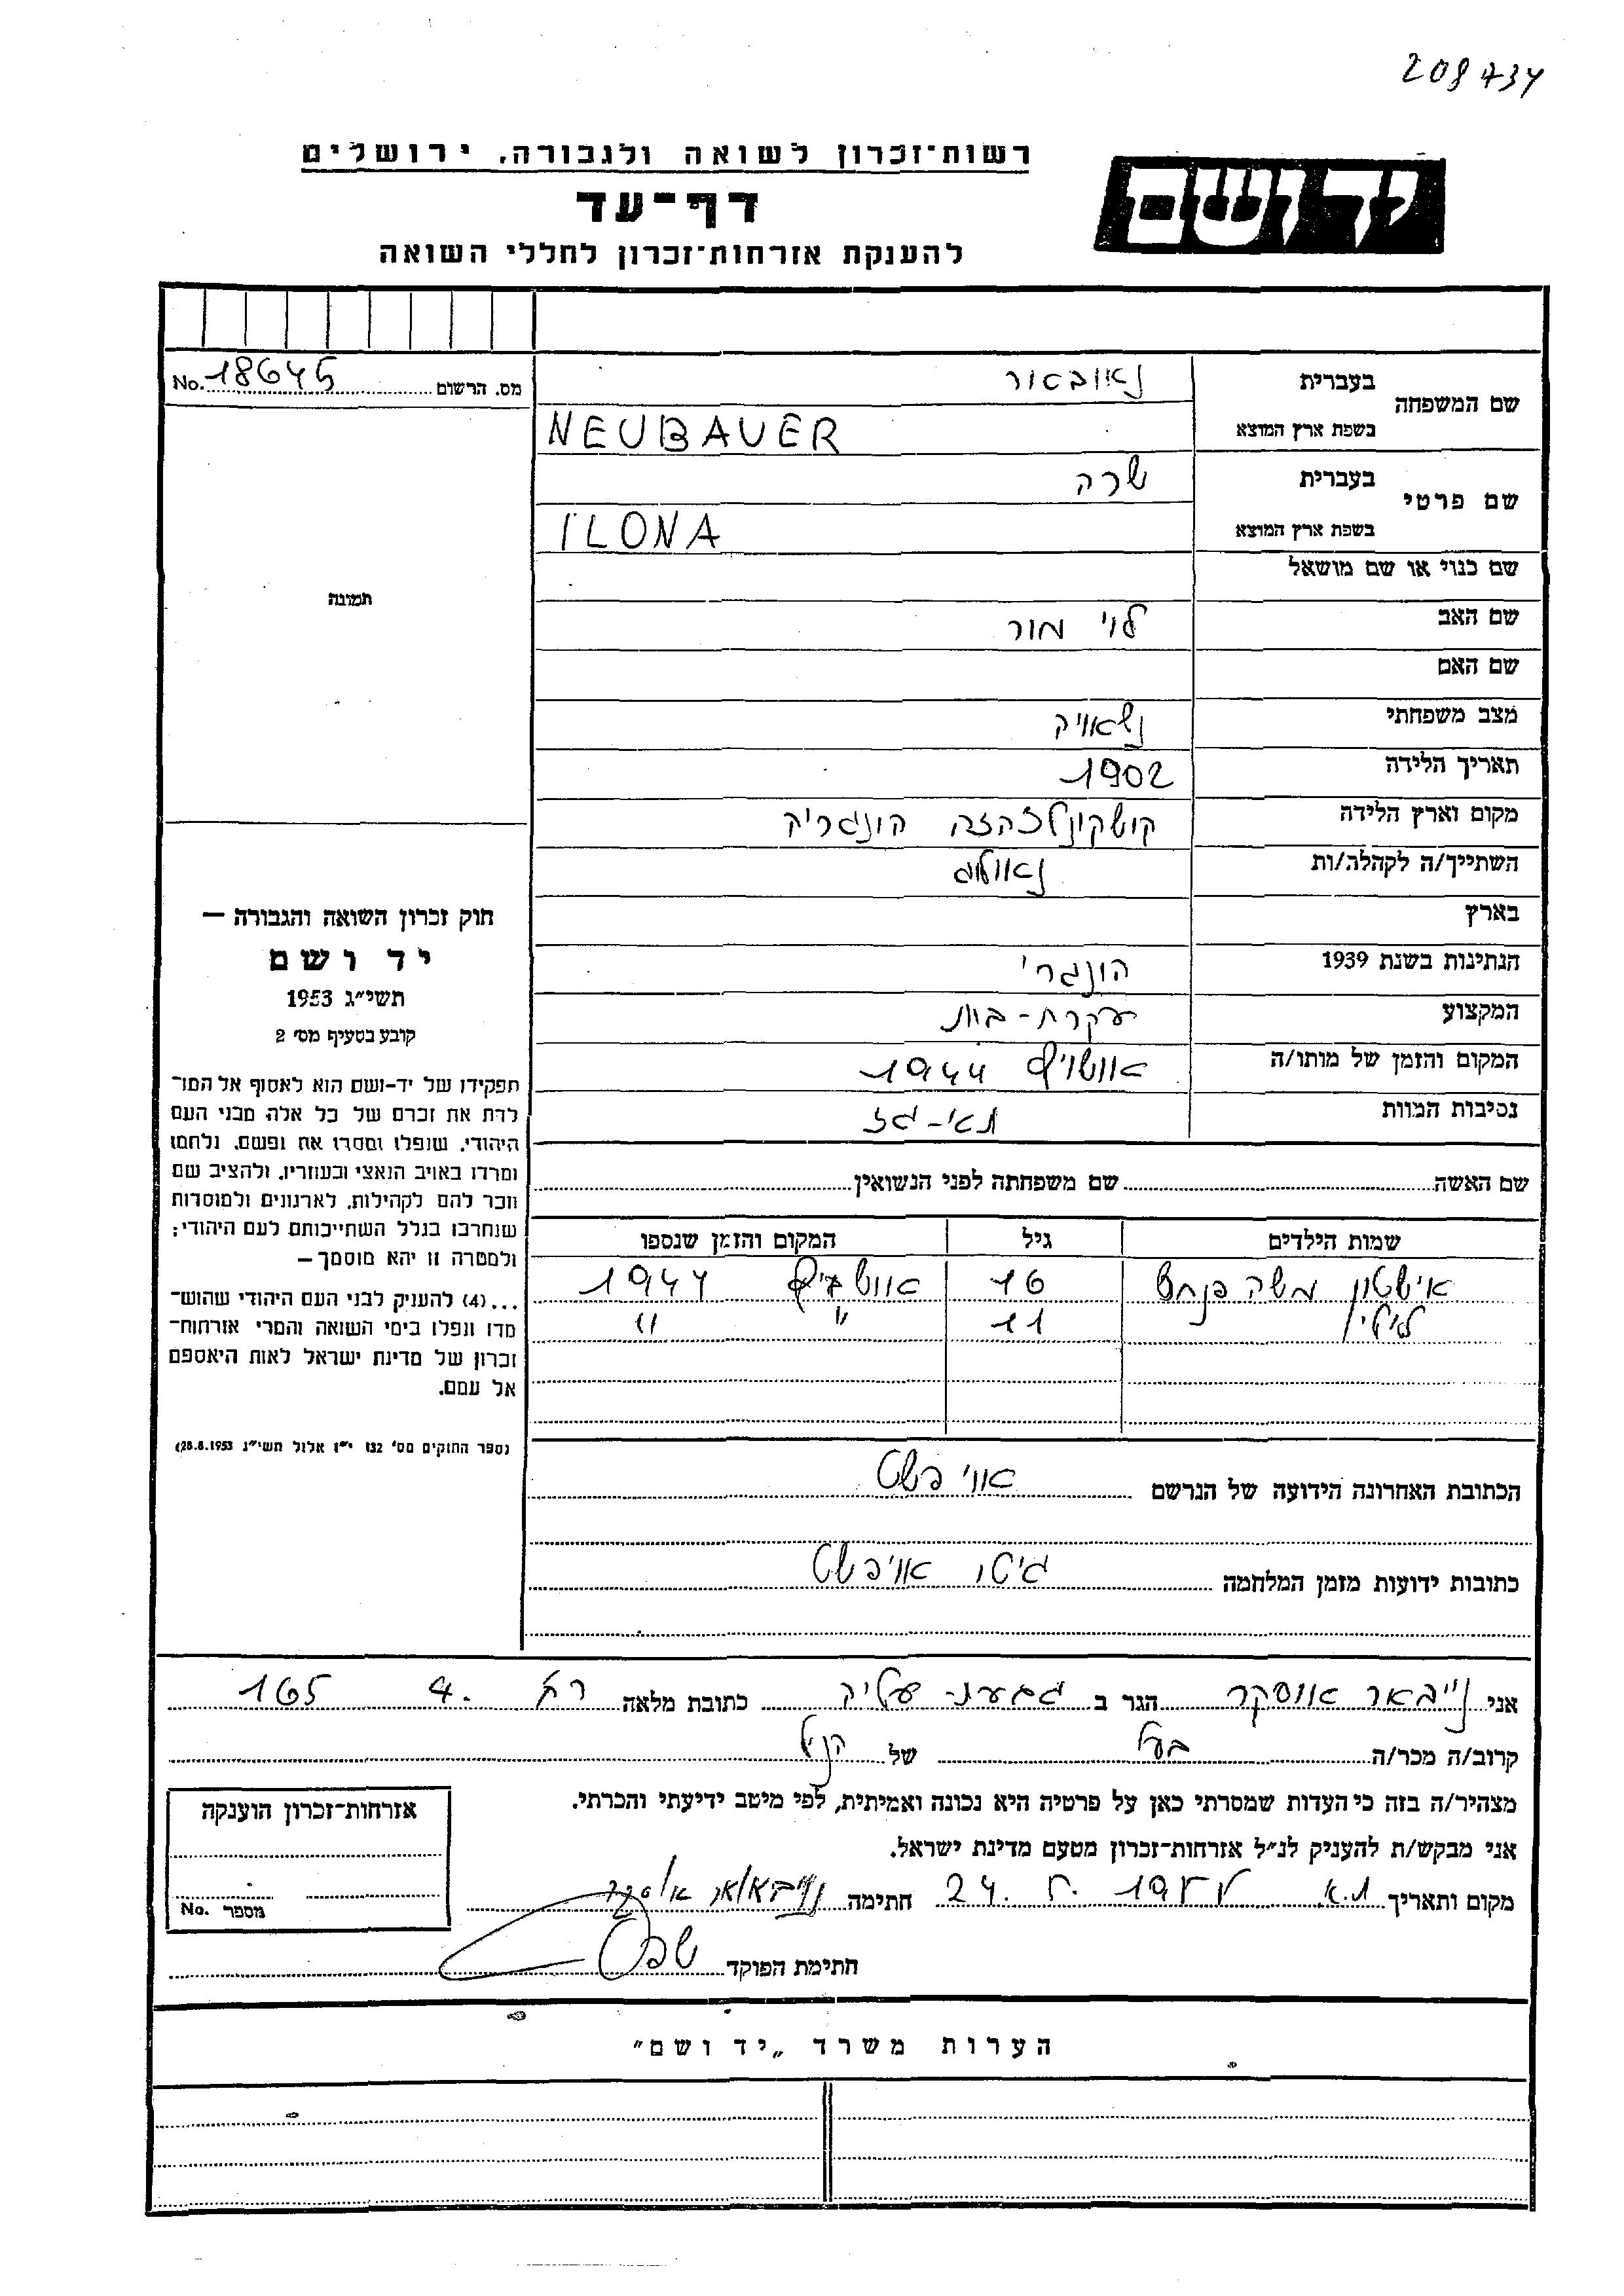 208734
רשות־זכרון לשואה ולגבורה, ירושלים
יד ושם
דף־עד
להענקת אזרחות־זכרון לחללי השואה
מס. הרשום No. 18645
שם המשפחה
בעברית נאובאור
בשפת ארץ המוצא NEUBAUER
שם פרטי
בעברית שרה
בשפת ארץ המוצא ILONA
שם כנוי או שם מושאל
שם האב לוי מור
שם האם
מצב משפחתי נשאויה
תאריך הלידה 1902
מקום וארץ הלידה הונגריה
השתייך/ה לקהלה/ות נאולוג
בארץ
הנתינות בשנת 1939 הונגרי
המקצוע עקרת-בית
המקום והזמן של מותו/ה אושויץ 1944
נסיבות המוות תאי-גז
שם האשה שם משפחתה לפני הנשואין
שמות הילדים גיל המקום והזמן שנספו
אישטון משה פנחס 16 אושויץ 1944
לילי 11 " "
הכתובת האחרונה הידועה של הנרשם אוי פשט
כתובות ידועות מזמן המלחמה גיטו אויפשט
תמונה
חוק זכרון השואה והגבורה —
יד ושם
תשי״ג 1953
קובע בסעיף מס׳ 2
תפקידו של יד-ושם הוא לאסוף אל המו־
לדת את זכרם של כל אלה מבני העם
היהודי, שנפלו ומסרו את נפשם, נלחמו
ומרדו באויב הנאצי ובעוזריו, ולהציב שם
וזכר להם לקהילות, לארגונים ולמוסדות
שנחרבו בגלל השתייכותם לעם היהודי;
ולמטרה זו יהא מוסמך —
...(4) להעניק לבני העם היהודי שהוש־
מדו ונפלו בימי השואה והמרי אזרחות־
זכרון של מדינת ישראל לאות היאספם
אל עמם.
(ספר החוקים מס׳ 132 י״ז אלול תשי״ג 28.8.1953)
אני נייבאר אוסקר הגר ב גבעת-עליה כתובת מלאה רח 4. 165
קרוב/ה מכר/ה בעל של הנ״ל
מצהיר/ה בזה כי העדות שמסרתי כאן על פרטיה היא נכונה ואמיתית, לפי מיטב ידיעתי והכרתי.
אני מבקש/ת להעניק לנ״ל אזרחות־זכרון מטעם מדינת ישראל.
מקום ותאריך ת.א 24. חתימה
חתימת הפוקד
אזרחות־זכרון הוענקה
מספר No.
הערות משרד „יד ושם״